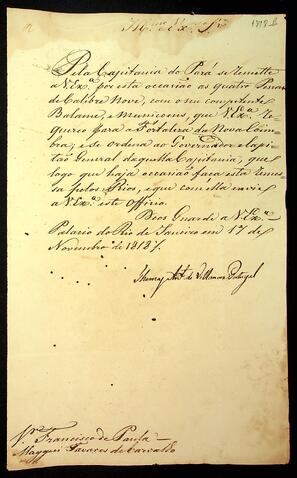 Il.mo e Ex.mo Snr.
Pela Capitania do Pará se remette
a V. Ex.ª por esta occazião as quatro Pessas
de Calibre Nove, com o seu competente
Balame, e Municoens, que V. Ex.ª re-
quereo para a Fortaleza da Nova Coim-
bra; e se ordena ao Governador e Capi-
tão General daquella Capitania, que
logo que haja occazião faca esta remes-
sa pelos Rios, e que com ella envie
a V. Ex.ª este Officio.
Deos Guarde a V. Ex.ª
Palacio do Rio de Janeiro em 17 de
Novembro de 1817.
Thomaz Ant.º de Villanova Portugal
Snr. Francisco de Paula
Magessi Tavares de Carvalho